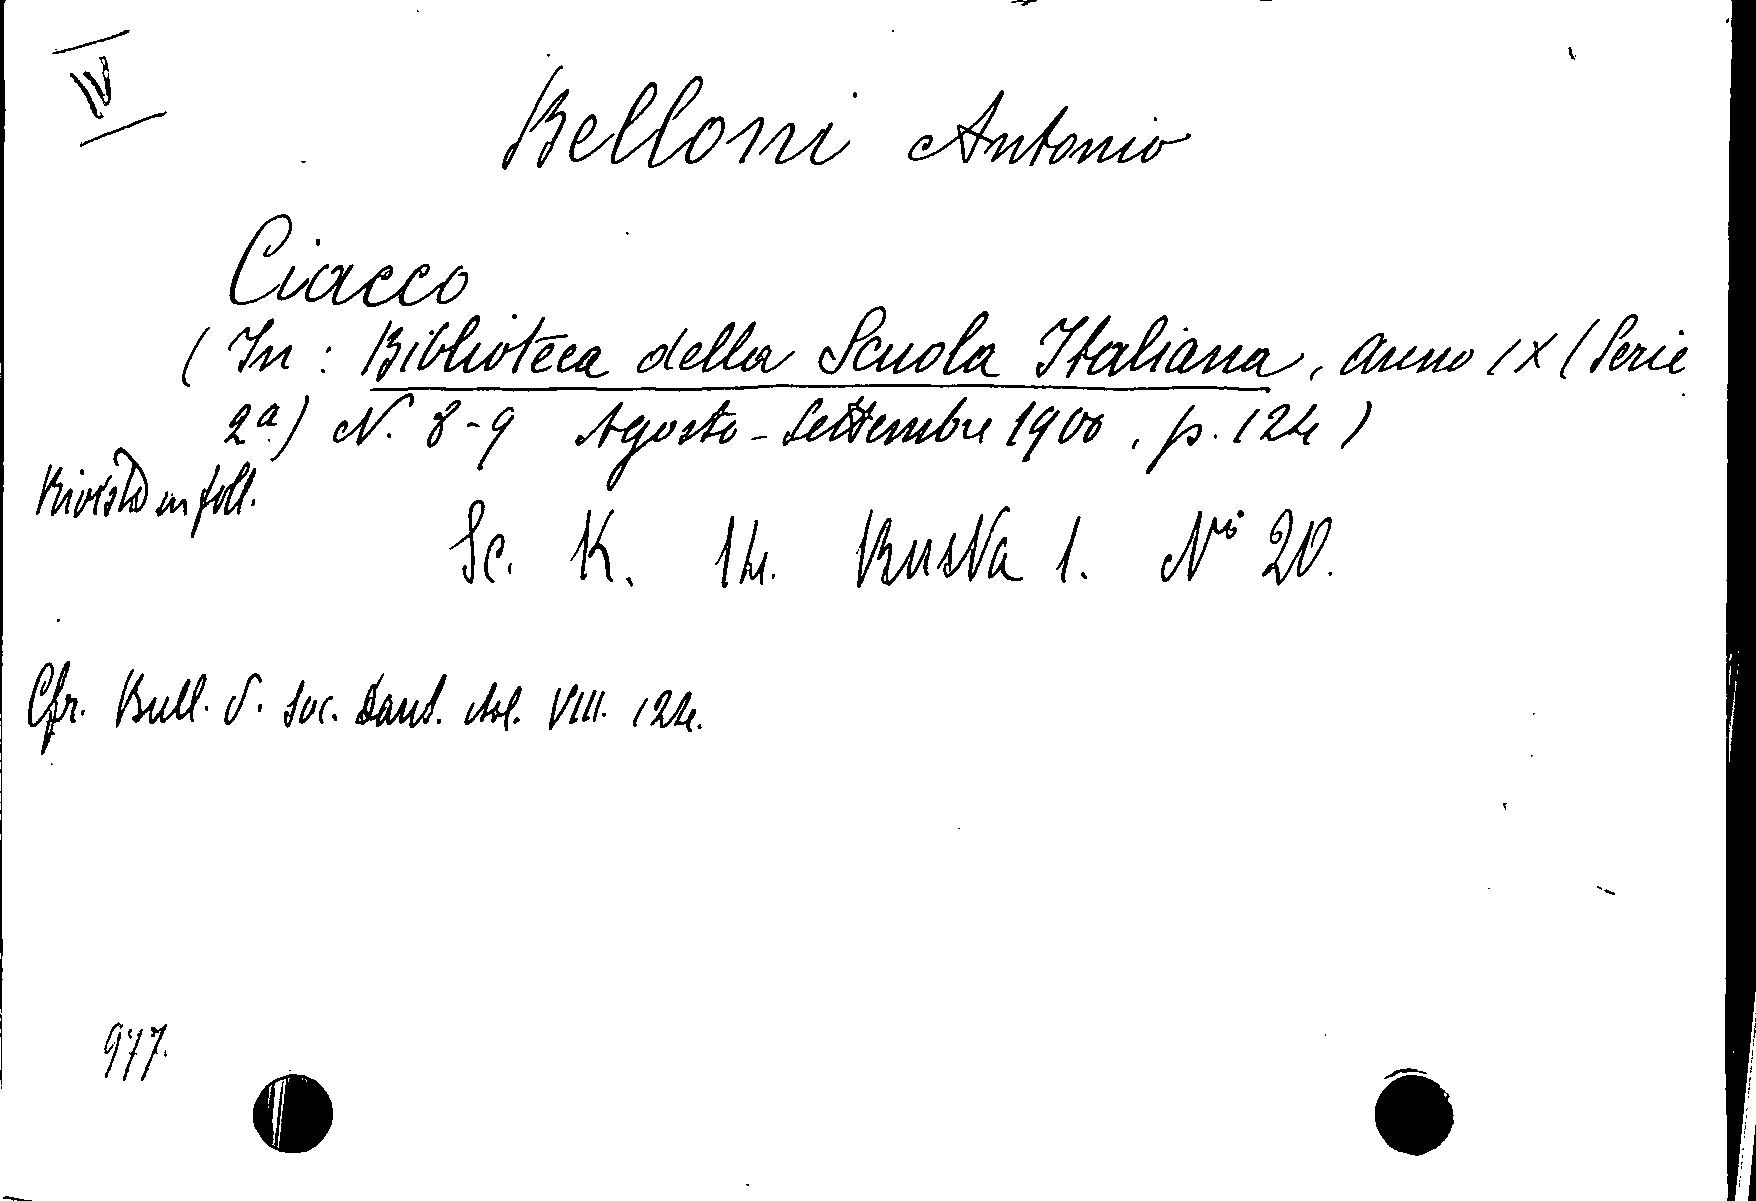 IV
Belloni Antonio
Ciacco
(In: Biblioteca della Scuola Italiana, anno IX (Serie
2ª) N. 8-9 Agosto-Settembre 1900, p. 124)
in foll.
Sc. K. 14. Busta 1. Nº 20.
Cfr. Bull. d. Soc. Dant. Ital. VIII. 124.
977.